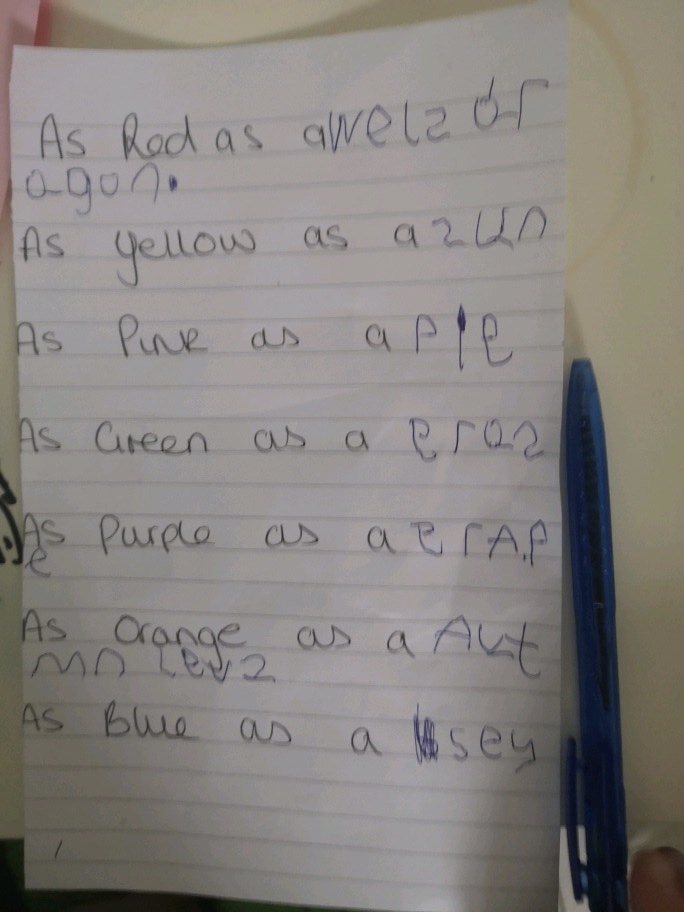 As Red as awelz dr
agon.
As yellow as a zun
As Pink as a Pig
As Green as a graz
As Purple as a grAP
e
As Orange as a Aut
mn levz
As Blue as a sey